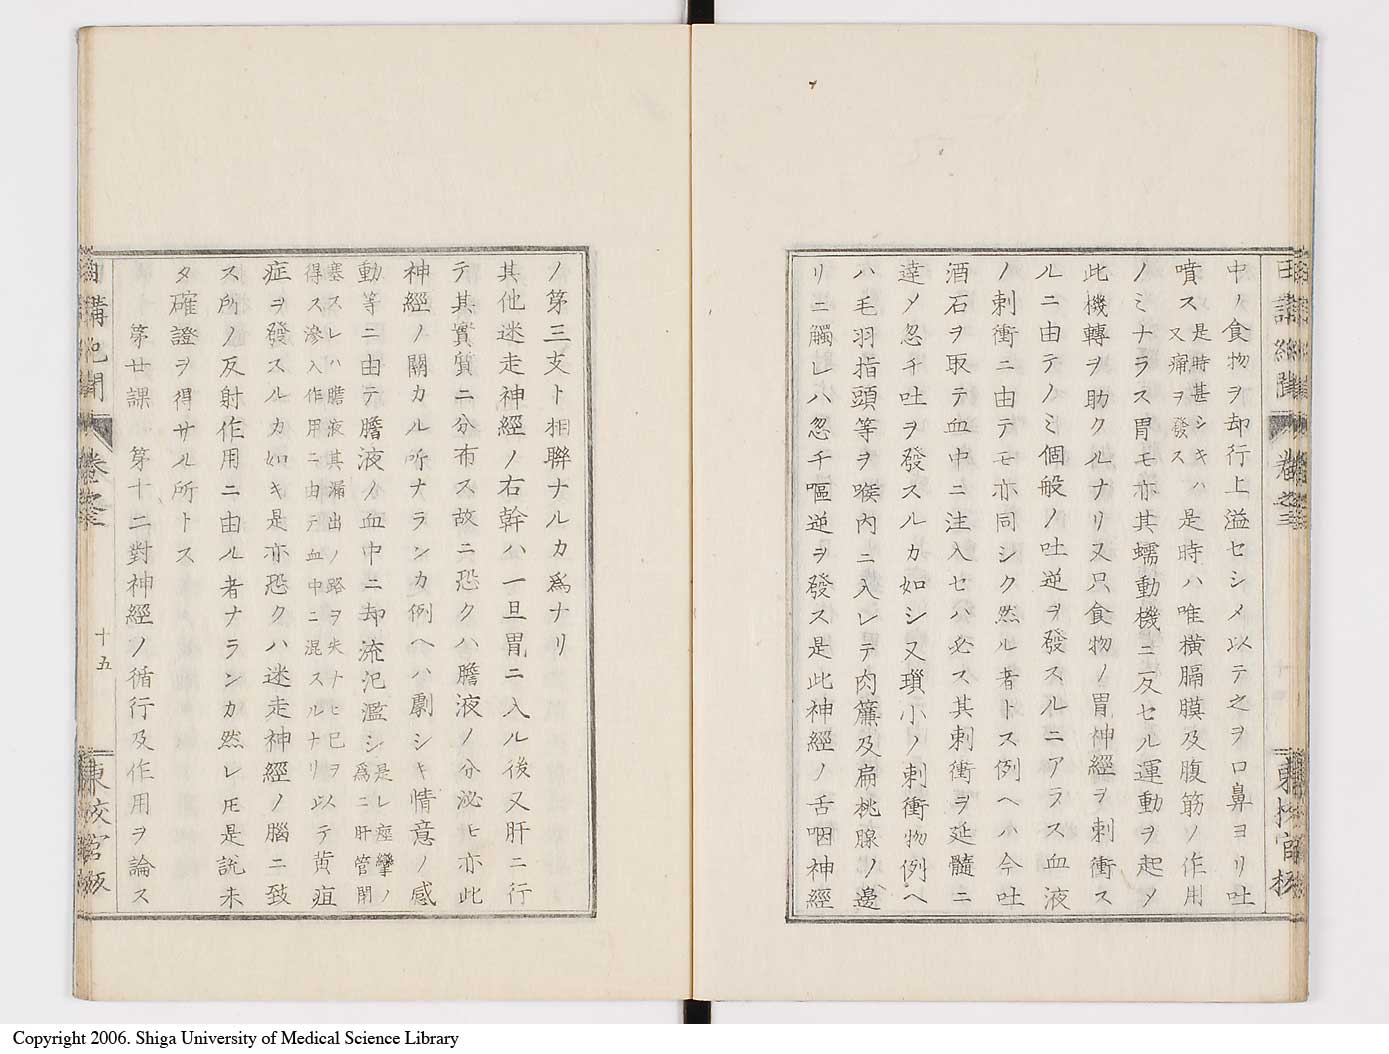 中ノ食物ヲ却行上溢セシメ以テ之ヲ口鼻ヨリ吐
噴ス是時甚シキハ又痛ヲ發ス是時ハ唯横膈膜及腹筋ノ作用
ノミナラス胃モ亦其蠕動機ニ反セル運動ヲ起メ
此機轉ヲ助クルナリ又只食物ノ胃神經ヲ刺衝ス
ルニ由テノミ個般ノ吐逆ヲ發スルニアラス血液
ノ刺衝ニ由テモ亦同シク然ル者トス例ヘハ今吐
酒石ヲ取テ血中ニ注入セハ必ス其刺衝ヲ延髓ニ
達メ忽チ吐ヲ發スルカ如シ又瑣小ノ刺衝物例ヘ
ハ毛羽指頭等ヲ喉内ニ入レテ肉簾及扁桃腺ノ邊
リニ觸レハ忽チ嘔逆ヲ發ス是此神經ノ舌咽神經
ノ第三支ト相聯ナルカ爲ナリ
其他迷走神經ノ右幹ハ一旦胃ニ入ル後又肝ニ行
テ其實質ニ分布ス故ニ恐クハ膽液ノ分泌ヒ亦此
神經ノ關カル所ナランカ例ヘハ劇シキ情意ノ感
動等ニ由テ膽液ノ血中ニ却流氾濫シ是レ痙攣ノ爲ニ肝管閉
塞スレハ膽液其漏出ノ路ヲ失ナヒ已ヲ
得ス滲入作用ニ由テ血中ニ混スルナリ以テ黄疸
症ヲ發スルカ如キ是亦恐クハ迷走神經ノ腦ニ致
ス所ノ反射作用ニ由ル者ナランカ然レ𪜈是説未
タ確證ヲ得サル所トス
第廿課 第十二對神經ノ循行及作用ヲ論ス
十五
Copyright 2006. Shiga University of Medical Science Library